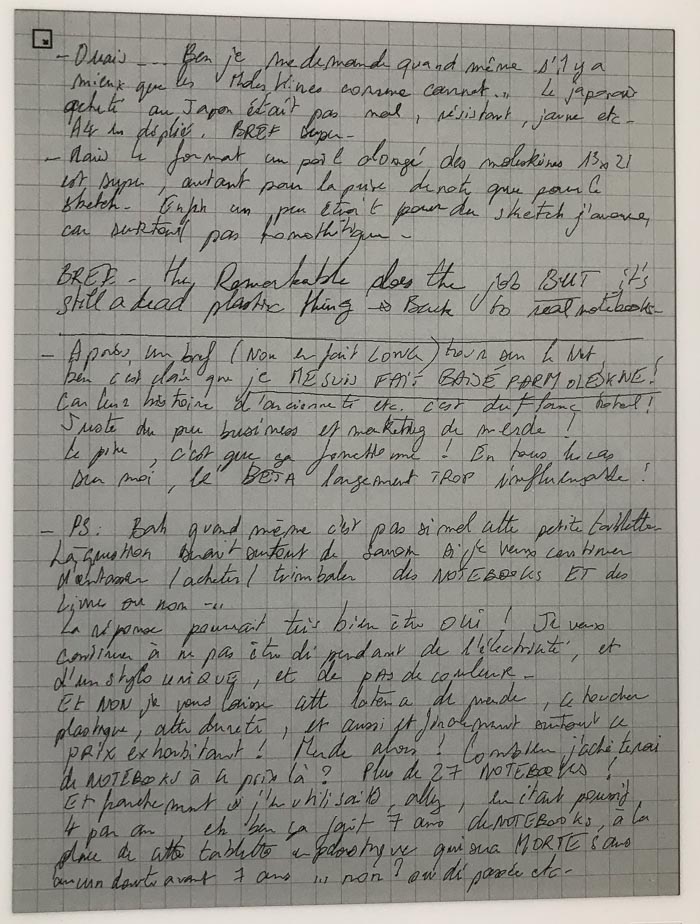 - Ouais ... Ben je me demande quand même s'il y a
mieux que les Moleskines comme carnet... Le japonais
acheté au Japon était pas mal, résistant, jaune etc-
A4 en déplié. BREF super-
- Mais le format un poil alongé des moleskines 13x21
est super, autant pour la prise de note que pour le
sketch- Enfin un peu étroit pour du sketch j'avoue,
car surtout pas homothétique-
BREF- the Remarkable does the job BUT it's
still a dead plastic thing → Back to real notebooks-
- Après un bref (Non en fait LONG) tour sur le Net,
ben c'est clair que je ME SUIS FAIT BAISÉ PAR MOLESKINE!
Car leur histoire d'ancienneté etc. c'est du flanc total!
Juste du pur business et marketing de merde!
Le pire, c'est que ça fonctionne! En tous les cas
sur moi, le BETA largement TROP influençable!
- PS: Bah quand même c'est pas si mal cette petite tablette
La question serait surtout de savoir si je veux continuer
d'entasser/acheter/trimbaler des NOTEBOOKS ET des
livres ou non ...
La réponse pourrait très bien être OUI! Je veux
continuer à ne pas être dépendant de l'électricité, et
d'un stylo UNIQUE, et de PAS de couleur-
Et NON je vous laisse cette de merde, ce toucher
plastique, cette dureté, et aussi et finalement surtout ce
PRIX exhorbitant! Merde alors! Combien j'achèterai
de NOTEBOOKS à ce prix là? Plus de 27 NOTEBOOKS!
Et franchement si j'en utilisais, allez, en étant positif,
4 par an, eh ben ça fait 7 ans de NOTEBOOKS, à la
place de cette tablette en plastique qui sera MORTE sans
aucun doute avant 7 ans ... non? ou dépassée etc-